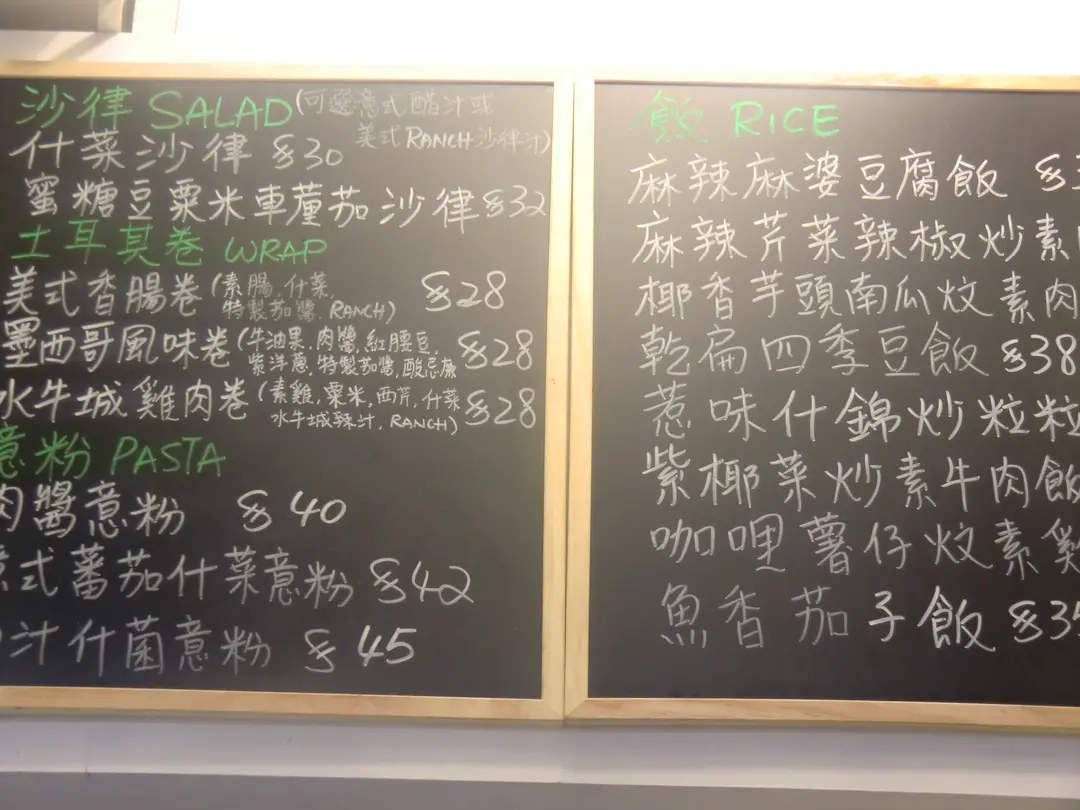 沙律 SALAD (可選意式醋汁或
美式RANCH沙律汁)
什菜沙律 $30
蜜糖豆粟米車厘茄沙律 $32
土耳其卷 WRAP
美式香腸卷 (素腸,什菜,
特製茄醬,RANCH) $28
墨西哥風味卷 (牛油果,肉醬,紅腰豆,
紫洋蔥,特製茄醬,酸忌廉 $28
水牛城雞肉卷 (素雞,粟米,西芹,什菜
水牛城辣汁,RANCH) $28
意粉 PASTA
肉醬意粉 $40
式蕃茄什菜意粉 $42
汁什菌意粉 $45
飯 RICE
麻辣麻婆豆腐飯 $3
麻辣芹菜辣椒炒素
椰香芋頭南瓜炆素肉
乾扁四季豆飯 $38
惹味什錦炒粒粒
紫椰菜炒素牛肉飯
咖哩薯仔炆素雞
魚香茄子飯 $35